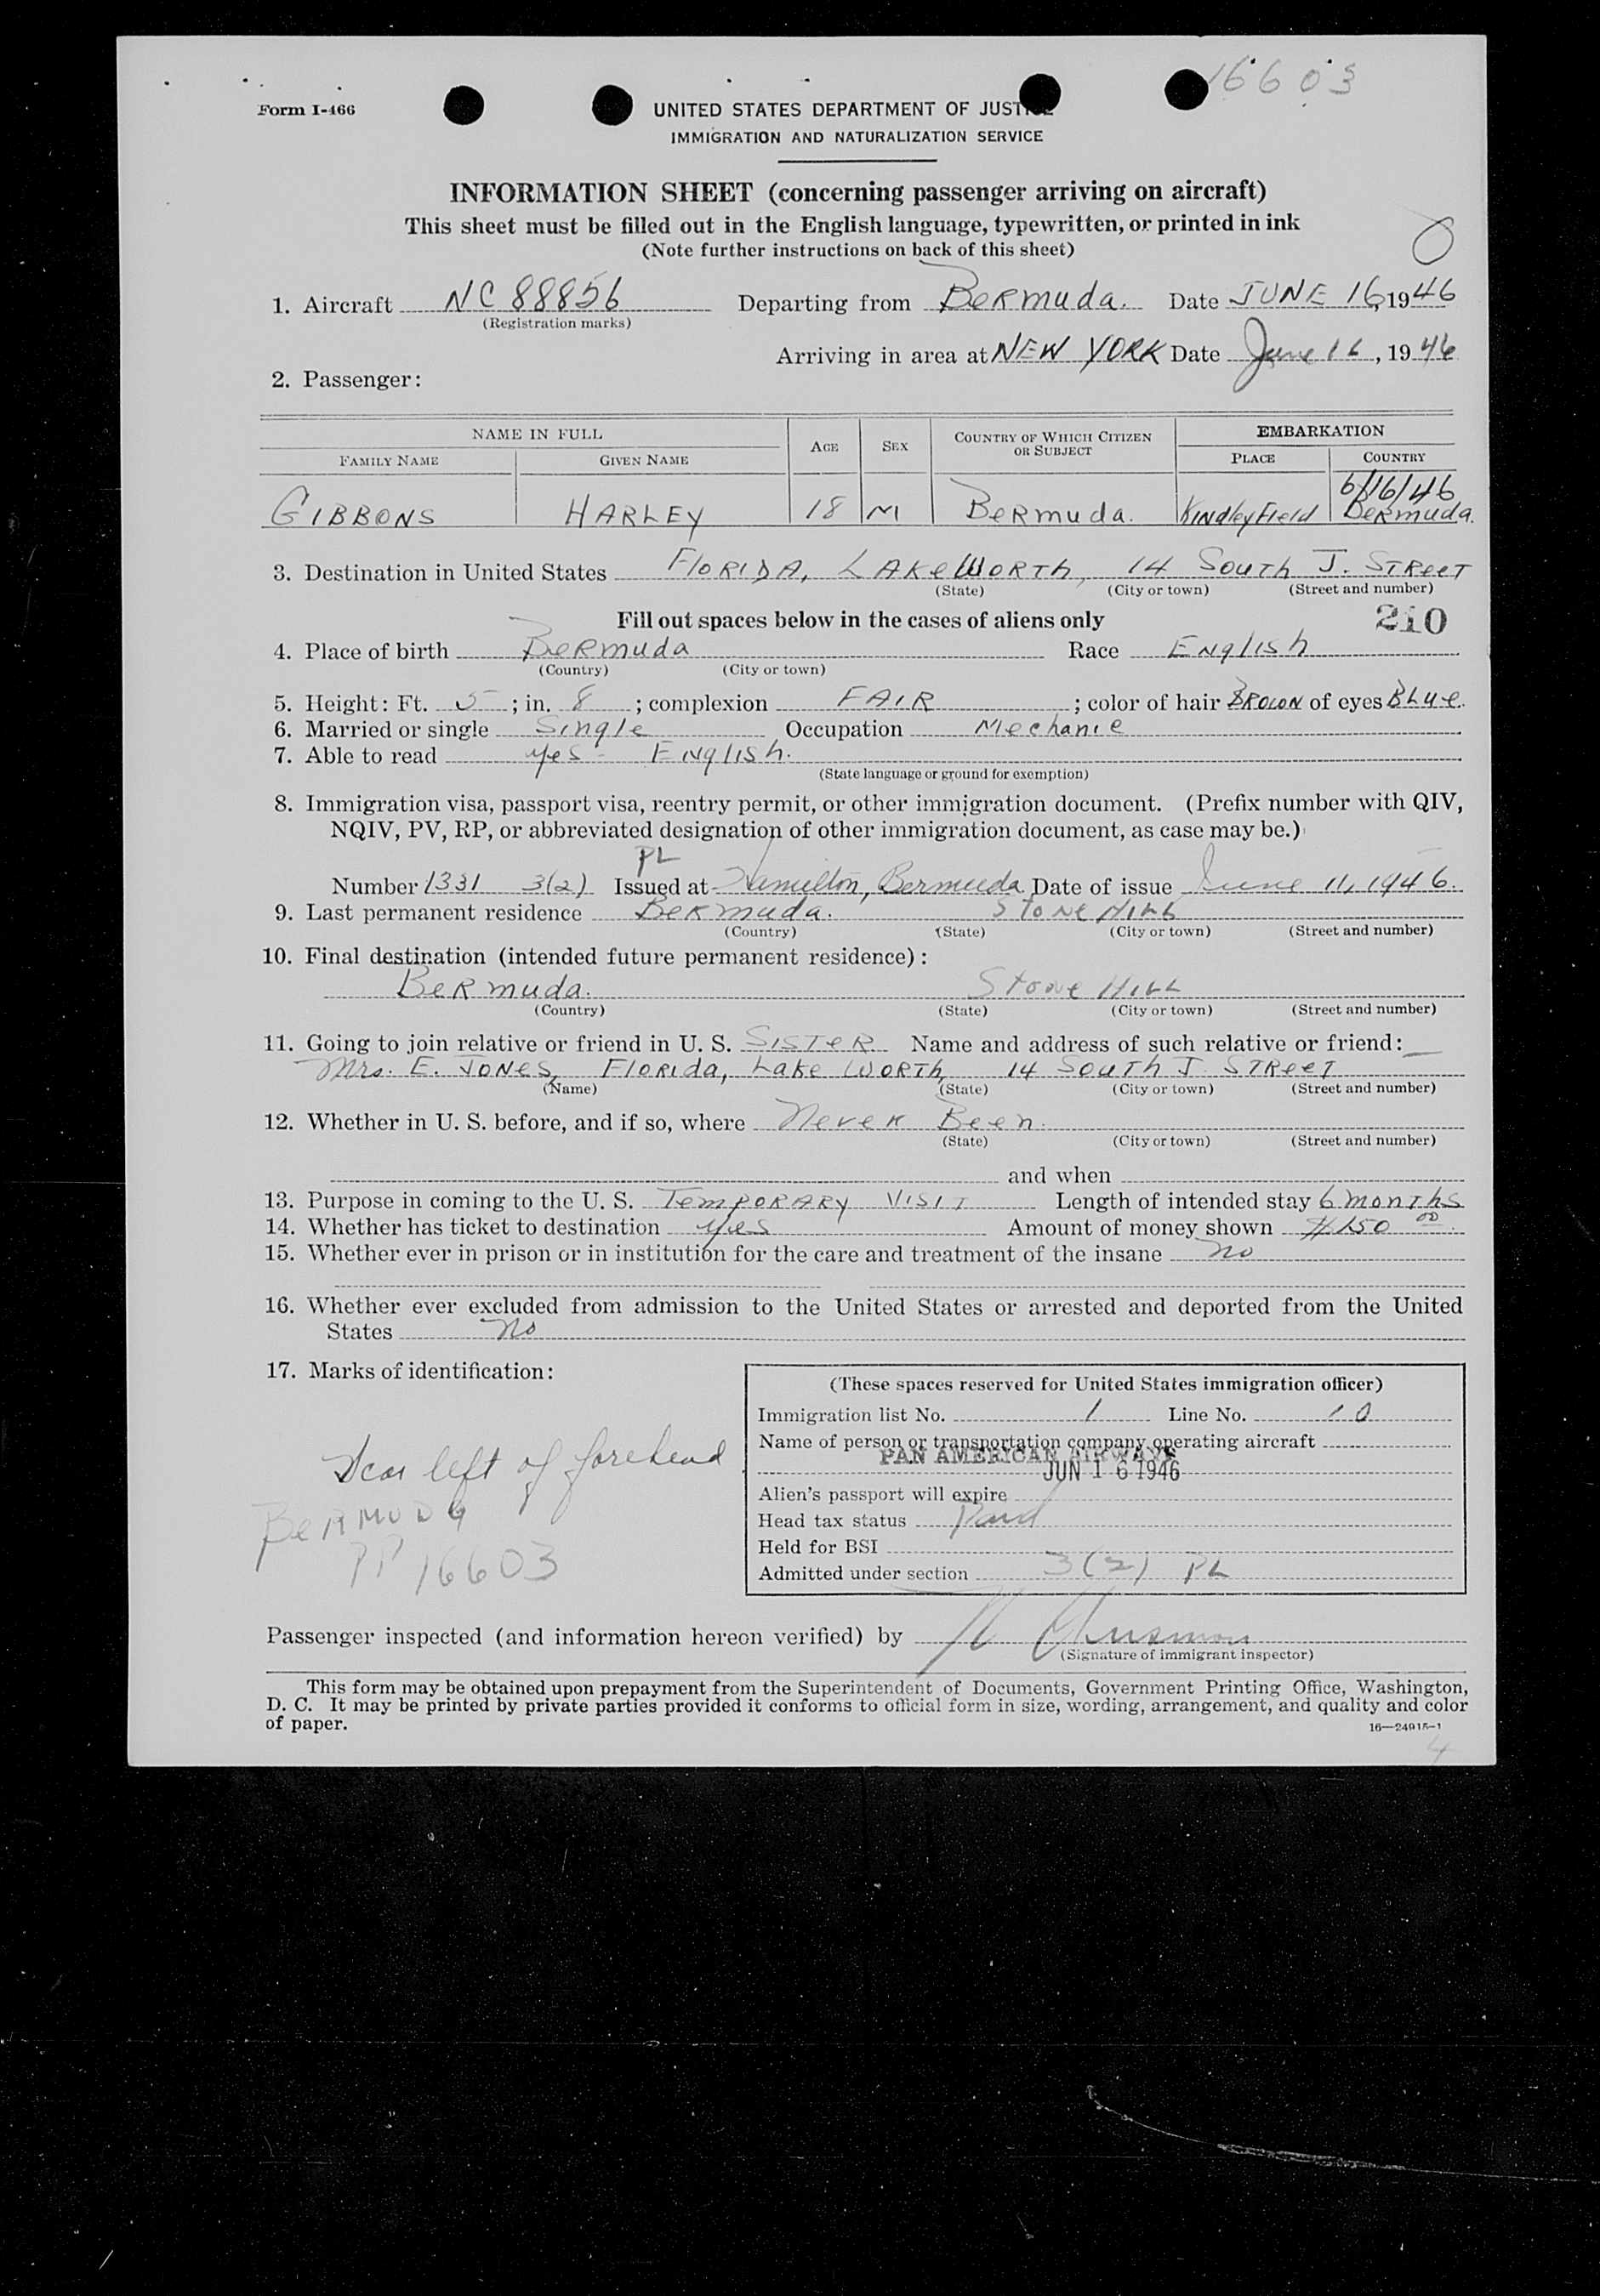 16603
Form I-466
UNITED STATES DEPARTMENT OF JUSTICE
IMMIGRATION AND NATURALIZATION SERVICE
INFORMATION SHEET (concerning passenger arriving on aircraft)
This sheet must be filled out in the English language, typewritten, or printed in ink
(Note further instructions on back of this sheet)
1. Aircraft NC 88856 Departing from Bermuda. Date JUNE 16, 1946
(Registration marks)
Arriving in area at NEW YORK Date June 16, 1946
2. Passenger:
NAME IN FULL AGE SEX COUNTRY OF WHICH CITIZEN OR SUBJECT EMBARKATION
FAMILY NAME GIVEN NAME PLACE COUNTRY
6/16/46
GIBBONS HARLEY 18 M Bermuda. Kindley Field Bermuda.
3. Destination in United States FLORIDA, LAKE WORTH, 14 SOUTH J. STREET
(State) (City or town) (Street and number)
Fill out spaces below in the cases of aliens only 210
4. Place of birth Bermuda Race English
(Country) (City or town)
5. Height: Ft. 5; in. 8; complexion FAIR; color of hair BROWN of eyes BLUE.
6. Married or single Single Occupation Mechanic
7. Able to read yes - English.
(State language or ground for exemption)
8. Immigration visa, passport visa, reentry permit, or other immigration document. (Prefix number with QIV,
NQIV, PV, RP, or abbreviated designation of other immigration document, as case may be.)
PL
Number 1331 3(2) Issued at Hamilton, Bermuda Date of issue June 11, 1946.
9. Last permanent residence Bermuda. STONE HILL
(Country) (State) (City or town) (Street and number)
10. Final destination (intended future permanent residence):
Bermuda. Stone Hill
(Country) (State) (City or town) (Street and number)
11. Going to join relative or friend in U. S. SISTER Name and address of such relative or friend:
Mrs. E. JONES, Florida, Lake WORTH, 14 South J STREET
(Name) (State) (City or town) (Street and number)
12. Whether in U. S. before, and if so, where Never Been.
(State) (City or town) (Street and number)
and when
13. Purpose in coming to the U. S. TEMPORARY VISIT Length of intended stay 6 months
14. Whether has ticket to destination yes Amount of money shown $150 00
15. Whether ever in prison or in institution for the care and treatment of the insane no
16. Whether ever excluded from admission to the United States or arrested and deported from the United
States no
17. Marks of identification:
Scar left of forehead
BERMUDA
PP 16603
(These spaces reserved for United States immigration officer)
Immigration list No. 1 Line No. 10
Name of person or transportation company operating aircraft
PAN AMERICAN AIRWAYS
JUN 16 1946
Alien's passport will expire
Head tax status Paid
Held for BSI
Admitted under section 3(2) PL
Passenger inspected (and information hereon verified) by
(Signature of immigrant inspector)
This form may be obtained upon prepayment from the Superintendent of Documents, Government Printing Office, Washington,
D. C. It may be printed by private parties provided it conforms to official form in size, wording, arrangement, and quality and color
of paper.
16—24915-1
4